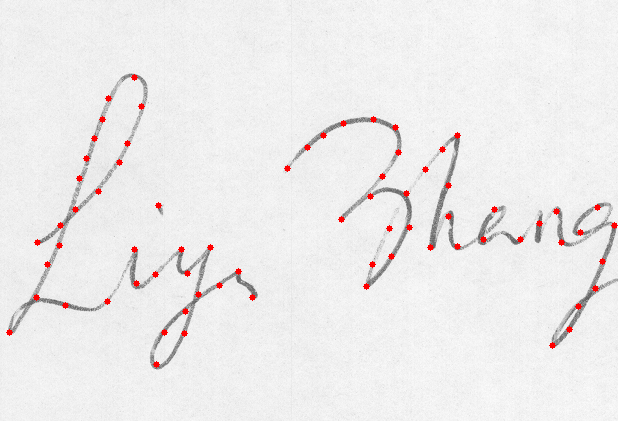 Liys Zhang